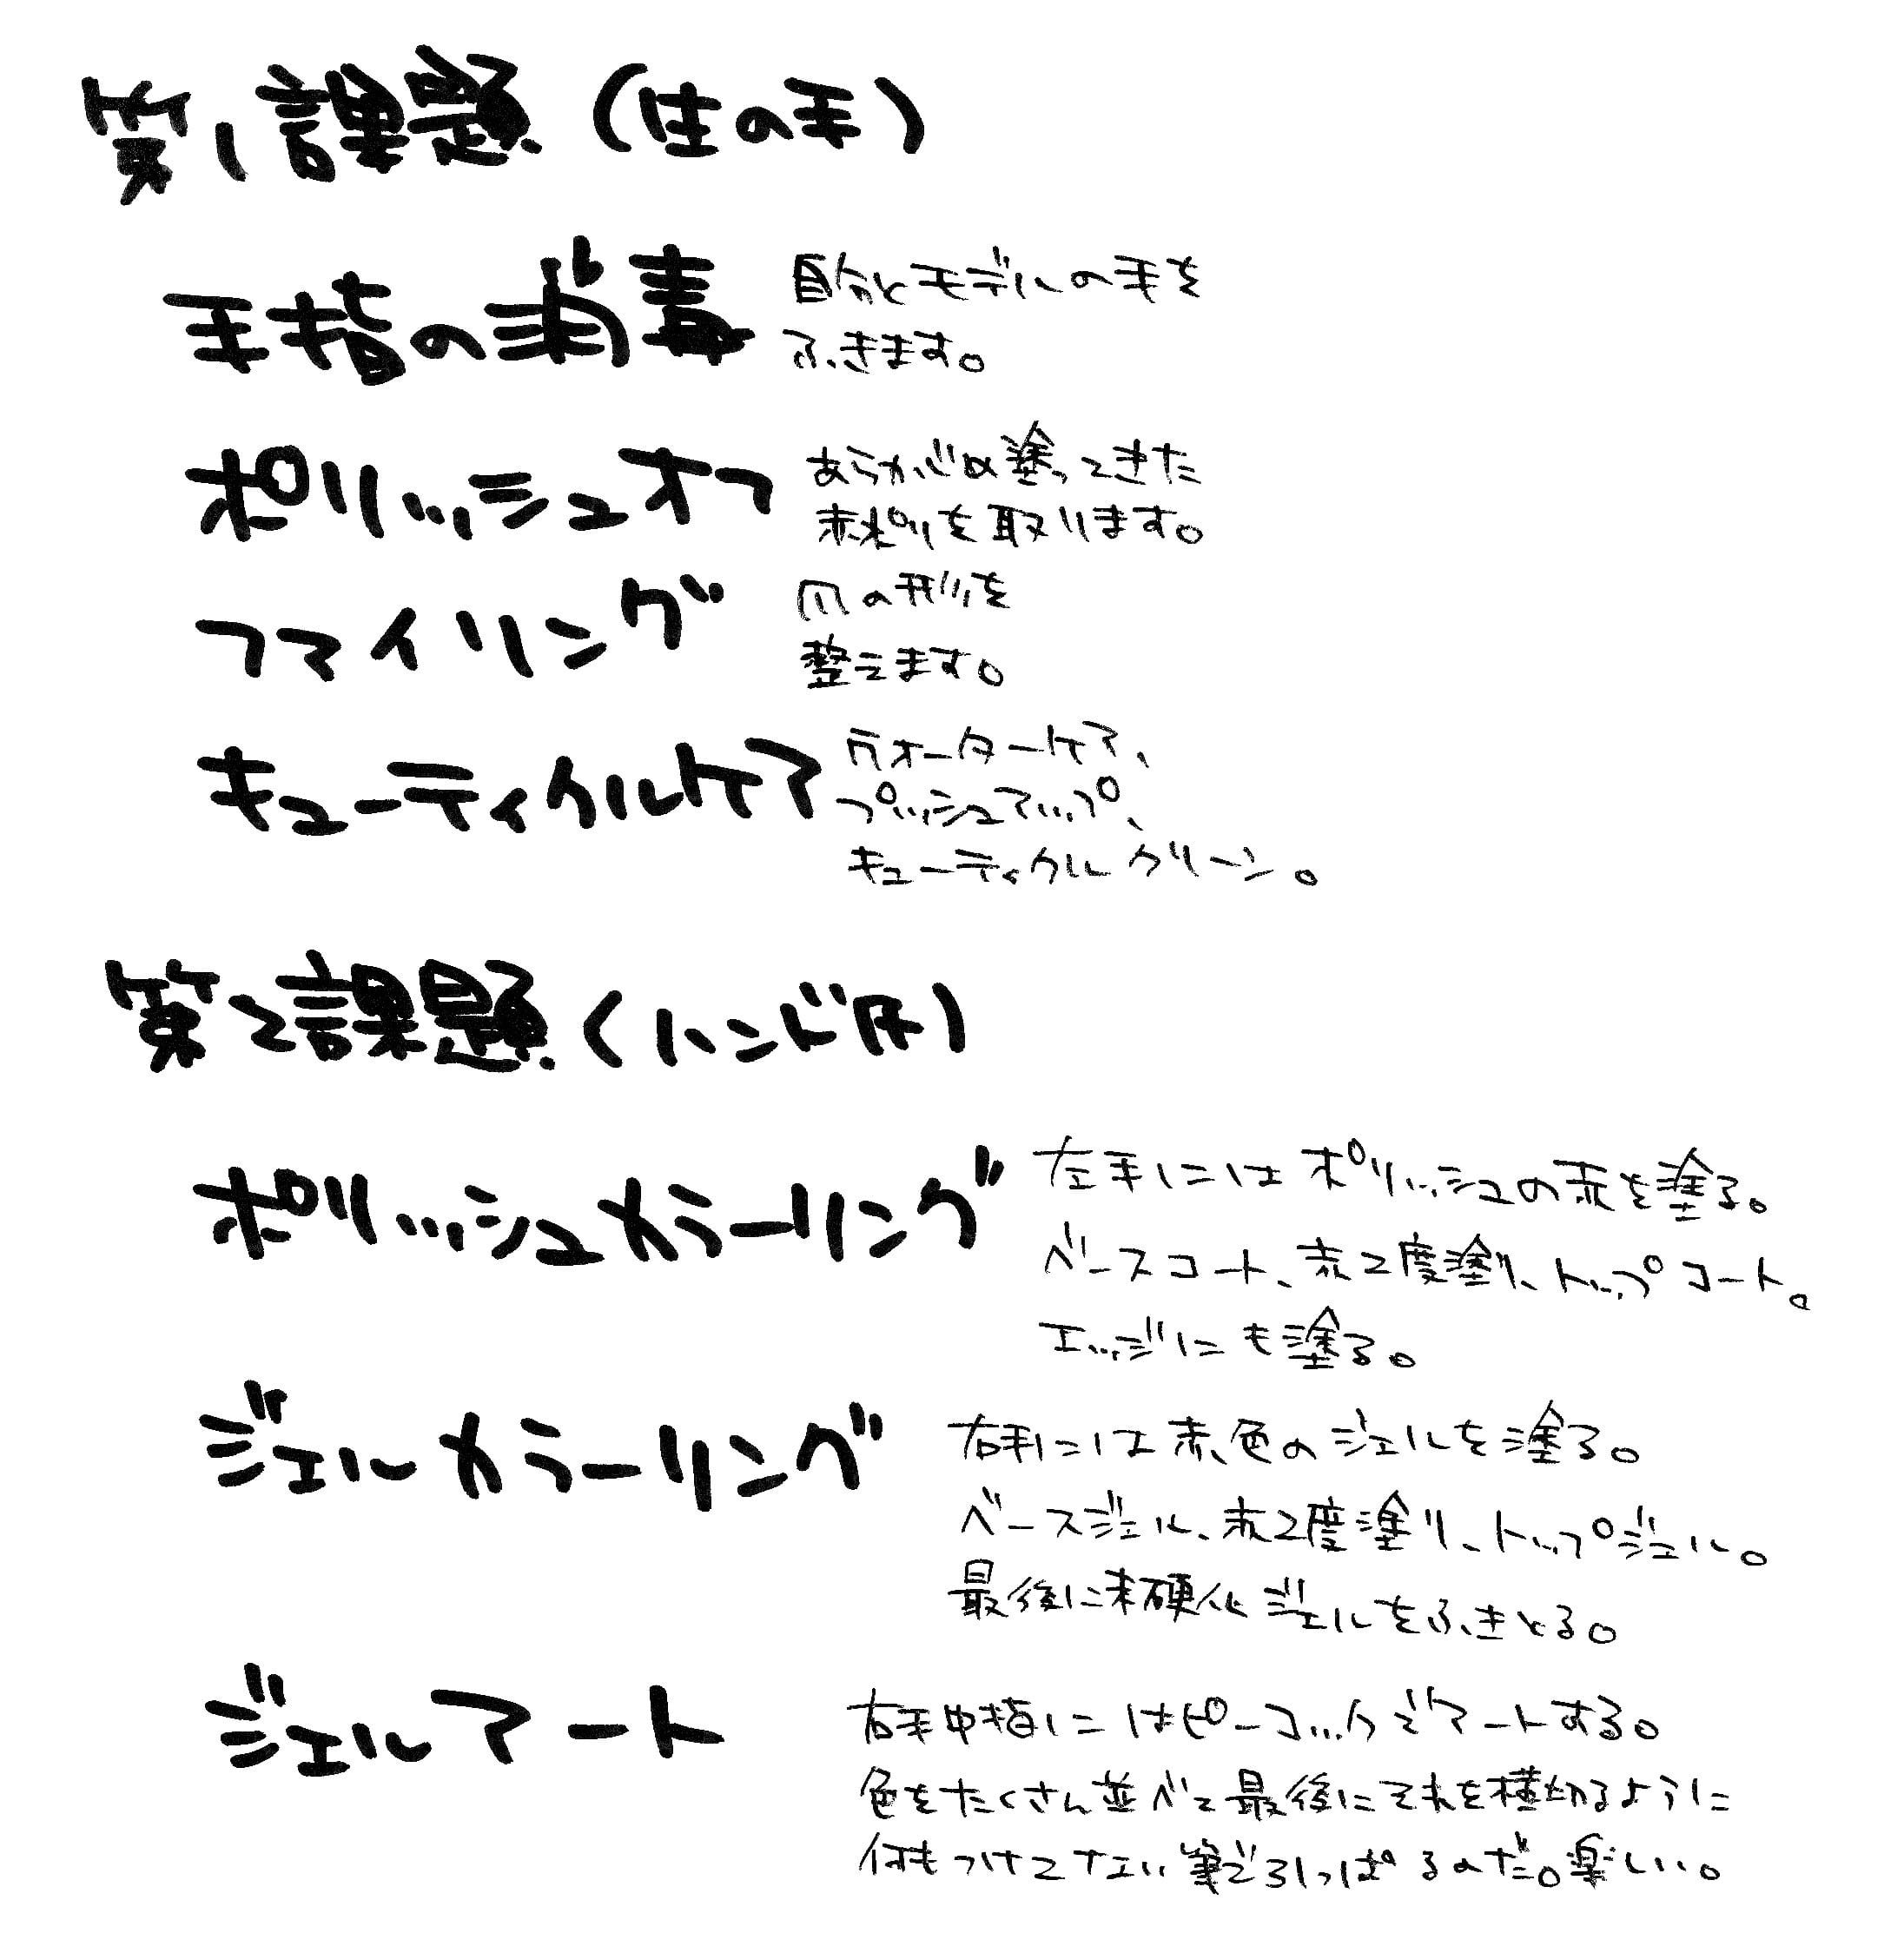 第1課題（生の手）
手指の消毒
自分とモデルの手を
ふきます。
ポリッシュオフ
あらかじめ塗ってきた
赤ポリを取ります。
ファイリング
爪の形を
整えます。
キューティクルケア
ウォーターケア、
プッシュアップ、
キューティクルクリーン。
第2課題（ハンド用）
ポリッシュカラーリング
左手にはポリッシュの赤を塗る。
ベースコート、赤2度塗り、トップコート。
エッジにも塗る。
ジェルカラーリング
右手には赤色のジェルを塗る。
ベースジェル、赤2度塗り、トップジェル。
最後に未硬化ジェルをふきとる。
ジェルアート
右手中指にはピーコックでアートする。
色をたくさん並べて最後にそれを横切るように
何もつけてない筆で引っぱるのだ。楽しい。